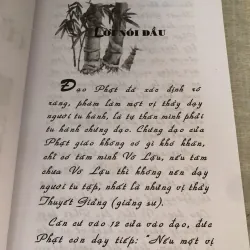 LỜI NÓI ĐẦU
Đạo Phật đã xác định rõ
ràng, phàm làm một vị thầy dạy
người tu hành, là tự thân mình phải
tu hành chứng đạo. Chứng đạo của
Phật giáo không có gì khó khăn,
chỉ có tâm mình Vô Lậu, nếu tâm
chưa Vô Lậu thì không nên dạy
người tu tập, nhất là những vị thầy
Thuyết Giảng (giảng sư).
Căn cứ vào 12 cửa vào đạo, đức
Phật còn dạy tiếp: "Nếu một vị